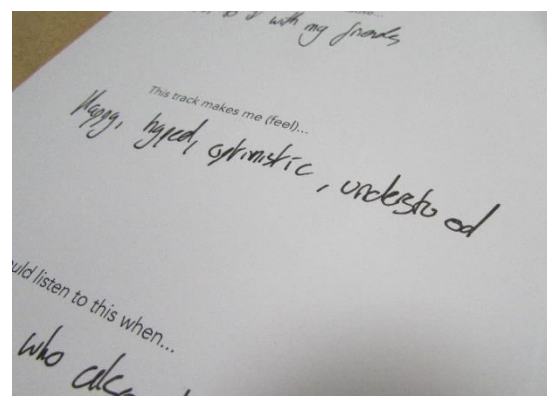 with my friends
This track makes me (feel)...
Happy, hyped, optimistic, understood
ould listen to this when...
who